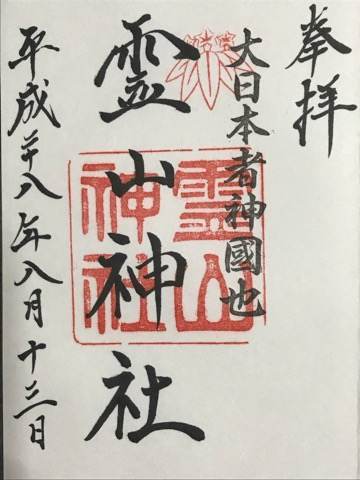 奉拝
大日本者神國也
霊山神社
霊山神社
平成廿八年八月十三日